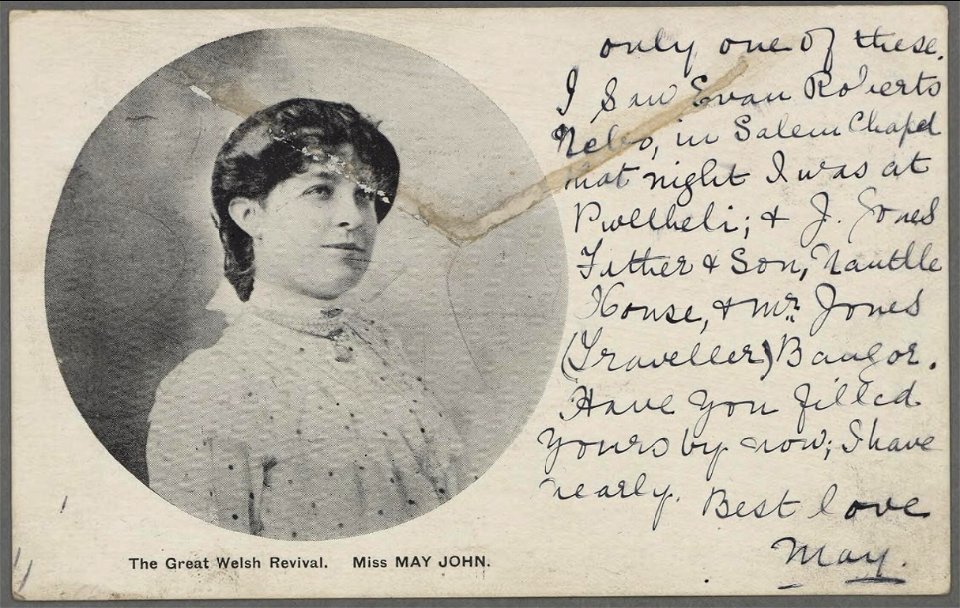 only one of these.
I saw Evan Roberts
Nebo, in Salem Chapel
that night I was at
Pwllheli; & J. Jones
Father & Son, Nantlle
House, & Mr. Jones
(Traveller) Bangor.
Have you filled
yours by now; I have
nearly. Best love
May.
The Great Welsh Revival. Miss MAY JOHN.